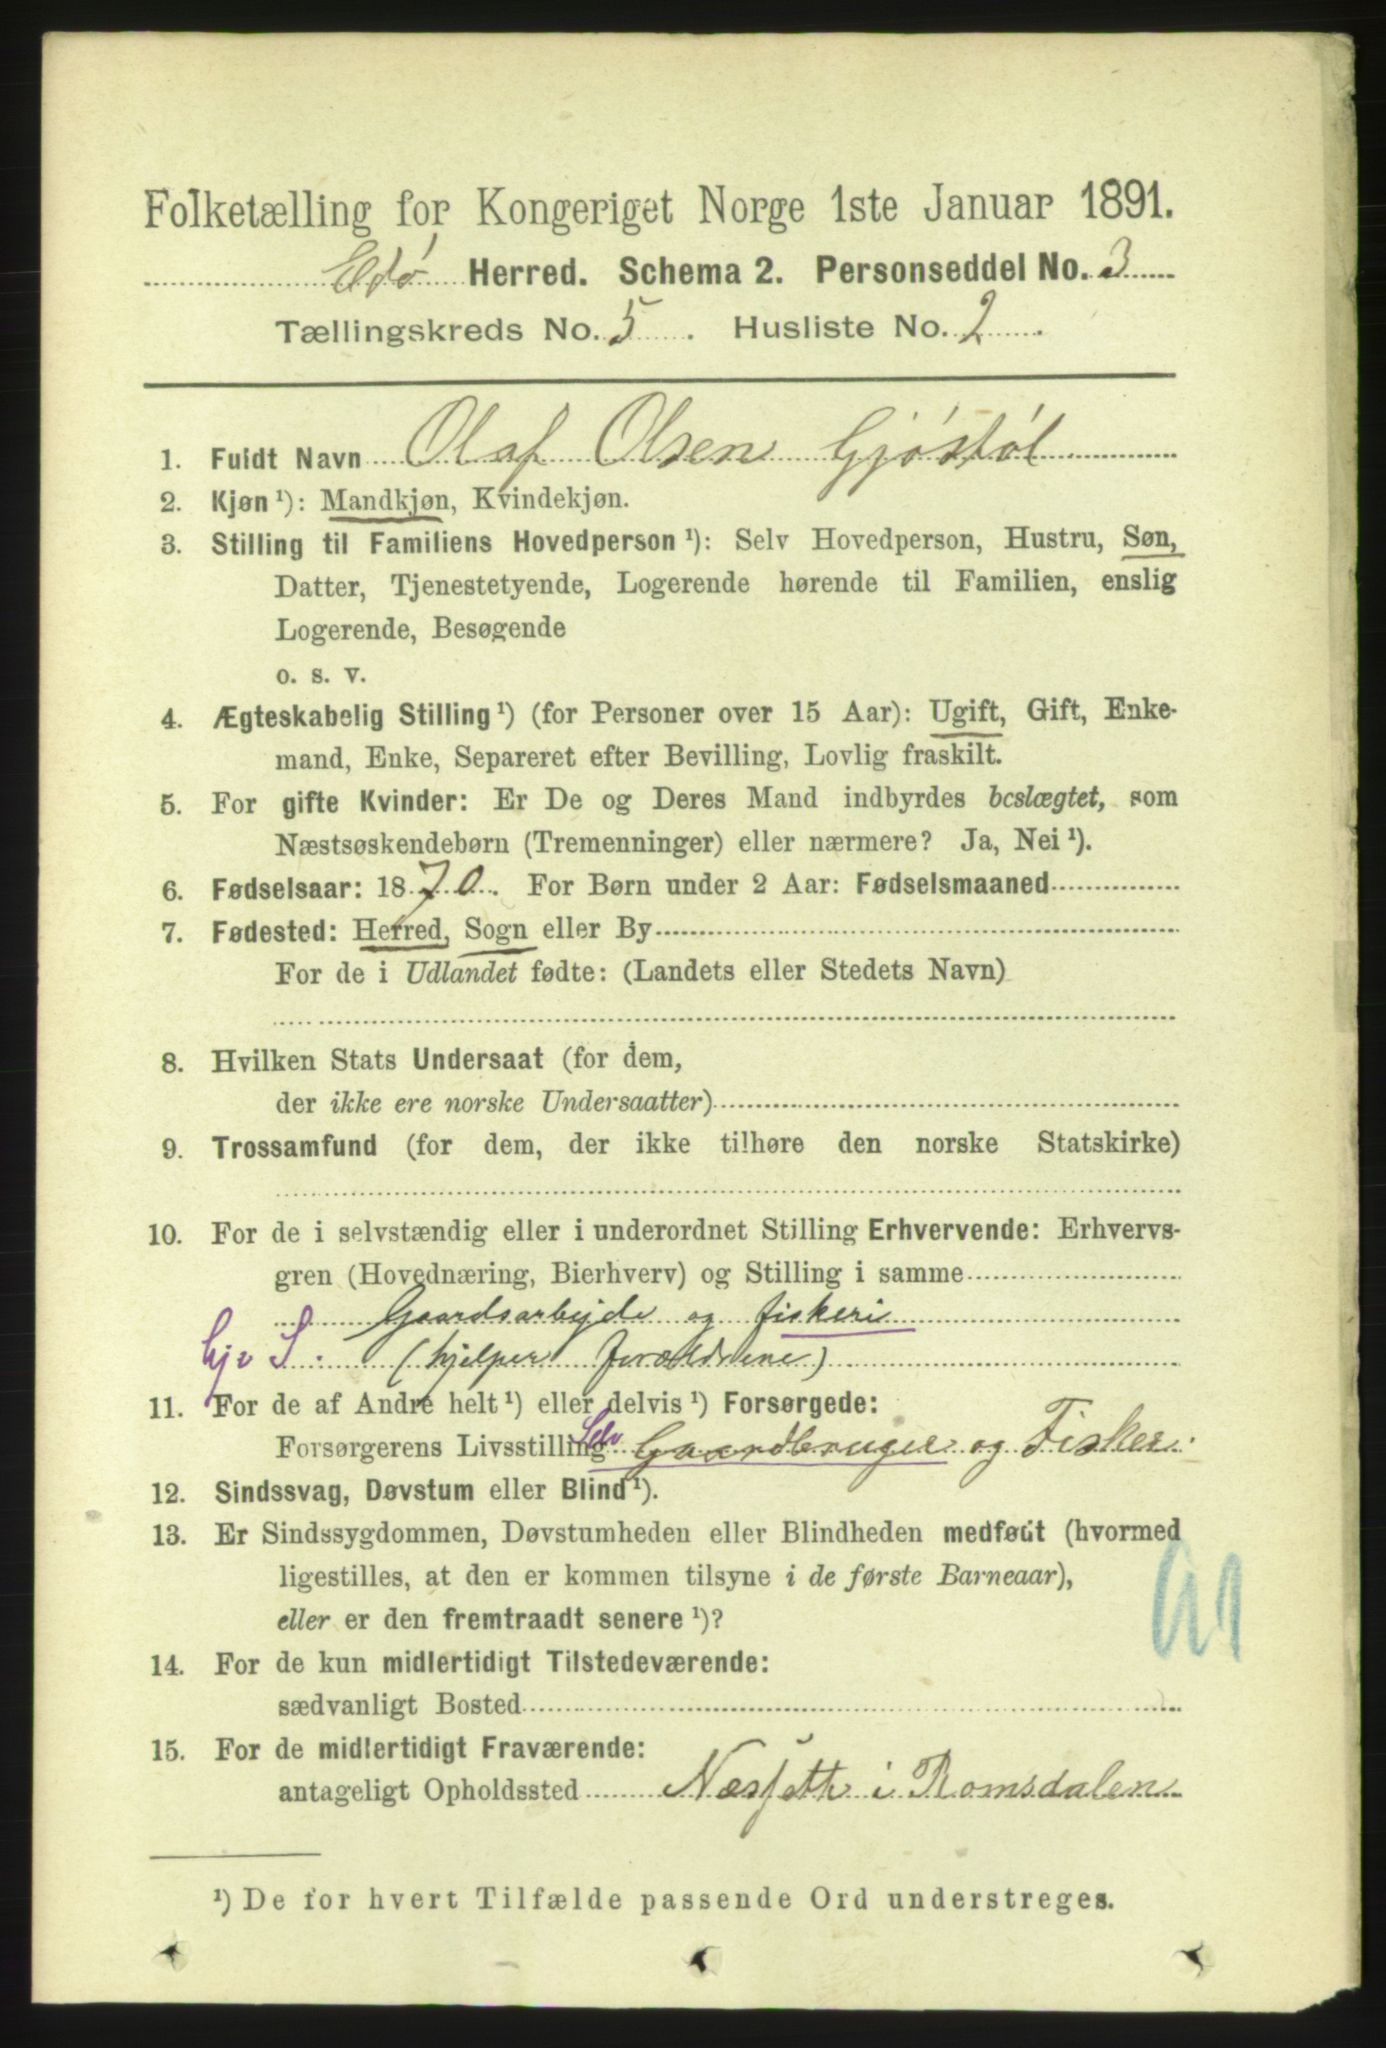 Folketælling for Kongeriget Norge 1ste Januar 1891.
Edø Herred. Schema 2. Personseddel No. 3
Tællingskreds No. 5. Husliste No. 2.
1. Fuldt Navn Olaf Olsen Gjøstøl
2. Kjøn¹): Mandkjøn, Kvindekjøn.
3. Stilling til Familiens Hovedperson¹): Selv Hovedperson, Hustru, Søn,
Datter, Tjenestetyende, Logerende hørende til Familien, enslig
Logerende, Besøgende
o. s. v.
4. Ægteskabelig Stilling¹) (for Personer over 15 Aar): Ugift, Gift, Enke-
mand, Enke, Separeret efter Bevilling, Lovlig fraskilt.
5. For gifte Kvinder: Er De og Deres Mand indbyrdes beslægtet, som
Næstsøskendebørn (Tremenninger) eller nærmere? Ja, Nei¹).
6. Fødselsaar: 1870. For Børn under 2 Aar: Fødselsmaaned
7. Fødested: Herred, Sogn eller By
For de i Udlandet fødte: (Landets eller Stedets Navn)
8. Hvilken Stats Undersaat (for dem,
der ikke ere norske Undersaatter)
9. Trossamfund (for dem, der ikke tilhøre den norske Statskirke)
10. For de i selvstændig eller i underordnet Stilling Erhvervende: Erhvervs-
gren (Hovednæring, Bierhverv) og Stilling i samme
Gaardsarbejde og fiskeri
hjv S. (hjelper forældrene)
11. For de af Andre helt¹) eller delvis¹) Forsørgede:
Forsørgerens Livsstilling Selv Gaardbruger og Fisker.
12. Sindssvag, Døvstum eller Blind¹).
13. Er Sindssygdommen, Døvstumheden eller Blindheden medfødt (hvormed
ligestilles, at den er kommen tilsyne i de første Barneaar),
eller er den fremtraadt senere¹)?
14. For de kun midlertidigt Tilstedeværende:
sædvanligt Bosted
15. For de midlertidigt Fraværende:
antageligt Opholdssted i Romsdalen
¹) De for hvert Tilfælde passende Ord understreges.